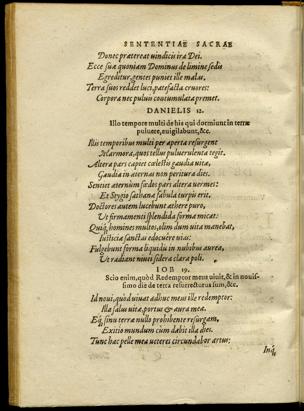 SENTENTIAE SACRAE
Donec prætereat vindicis ira Dei.
Ecce suæ quoniam Dominus de limine sedis
Egreditur, gentes puniet ille malas.
Terra suos reddet luci, patefacta cruores:
Corpora nec pulvis contumulata premet.
DANIELIS 12.
Illo tempore multi de his qui dormiunt in terræ
puluere, euigilabunt, &c.
Illis temporibus multi per aperta resurgent
Marmora, quos tellus puluerulenta tegit.
Altera pars capiet cælestis gaudia vitæ,
Gaudia in æternas non peritura dies.
Sentiet æternum sædos pars altera vermes:
Et Stygio sathanæ fabula turpis erit.
Doctores autem lucebunt æthere puro,
Ut firmamenti splendida forma micat:
Quiq; homines multos, olim dum vita manebat,
Iusticiæ sancta edocuere vias:
Fulgebunt forma liquidi in nubibus aurea,
Ut radiant nivei sidera clara poli.
IOB 19.
Scio enim, quòd Redemptor meus viuit, & in nouis-
simo die de terra resurrecturus sum, &c.
Id noui, quòd viuat adhuc meus ille redemptor:
Illa salus vitæ, portus & aura meæ.
Eq; sinu terræ nullo prohibente resurgam,
Exitio mundum cum dabit illa dies.
Tunc hac pelle mea veteres circundabor artus:
Inq;